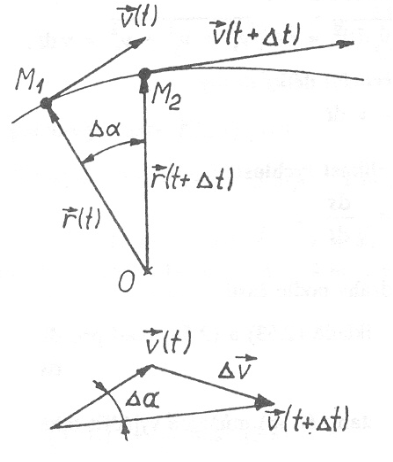 v⃗(t)
v⃗(t+Δt)
M₁
M₂
Δα
r⃗(t+Δt)
r⃗(t)
O
v⃗(t)
Δv⃗
Δα
v⃗(t+Δt)